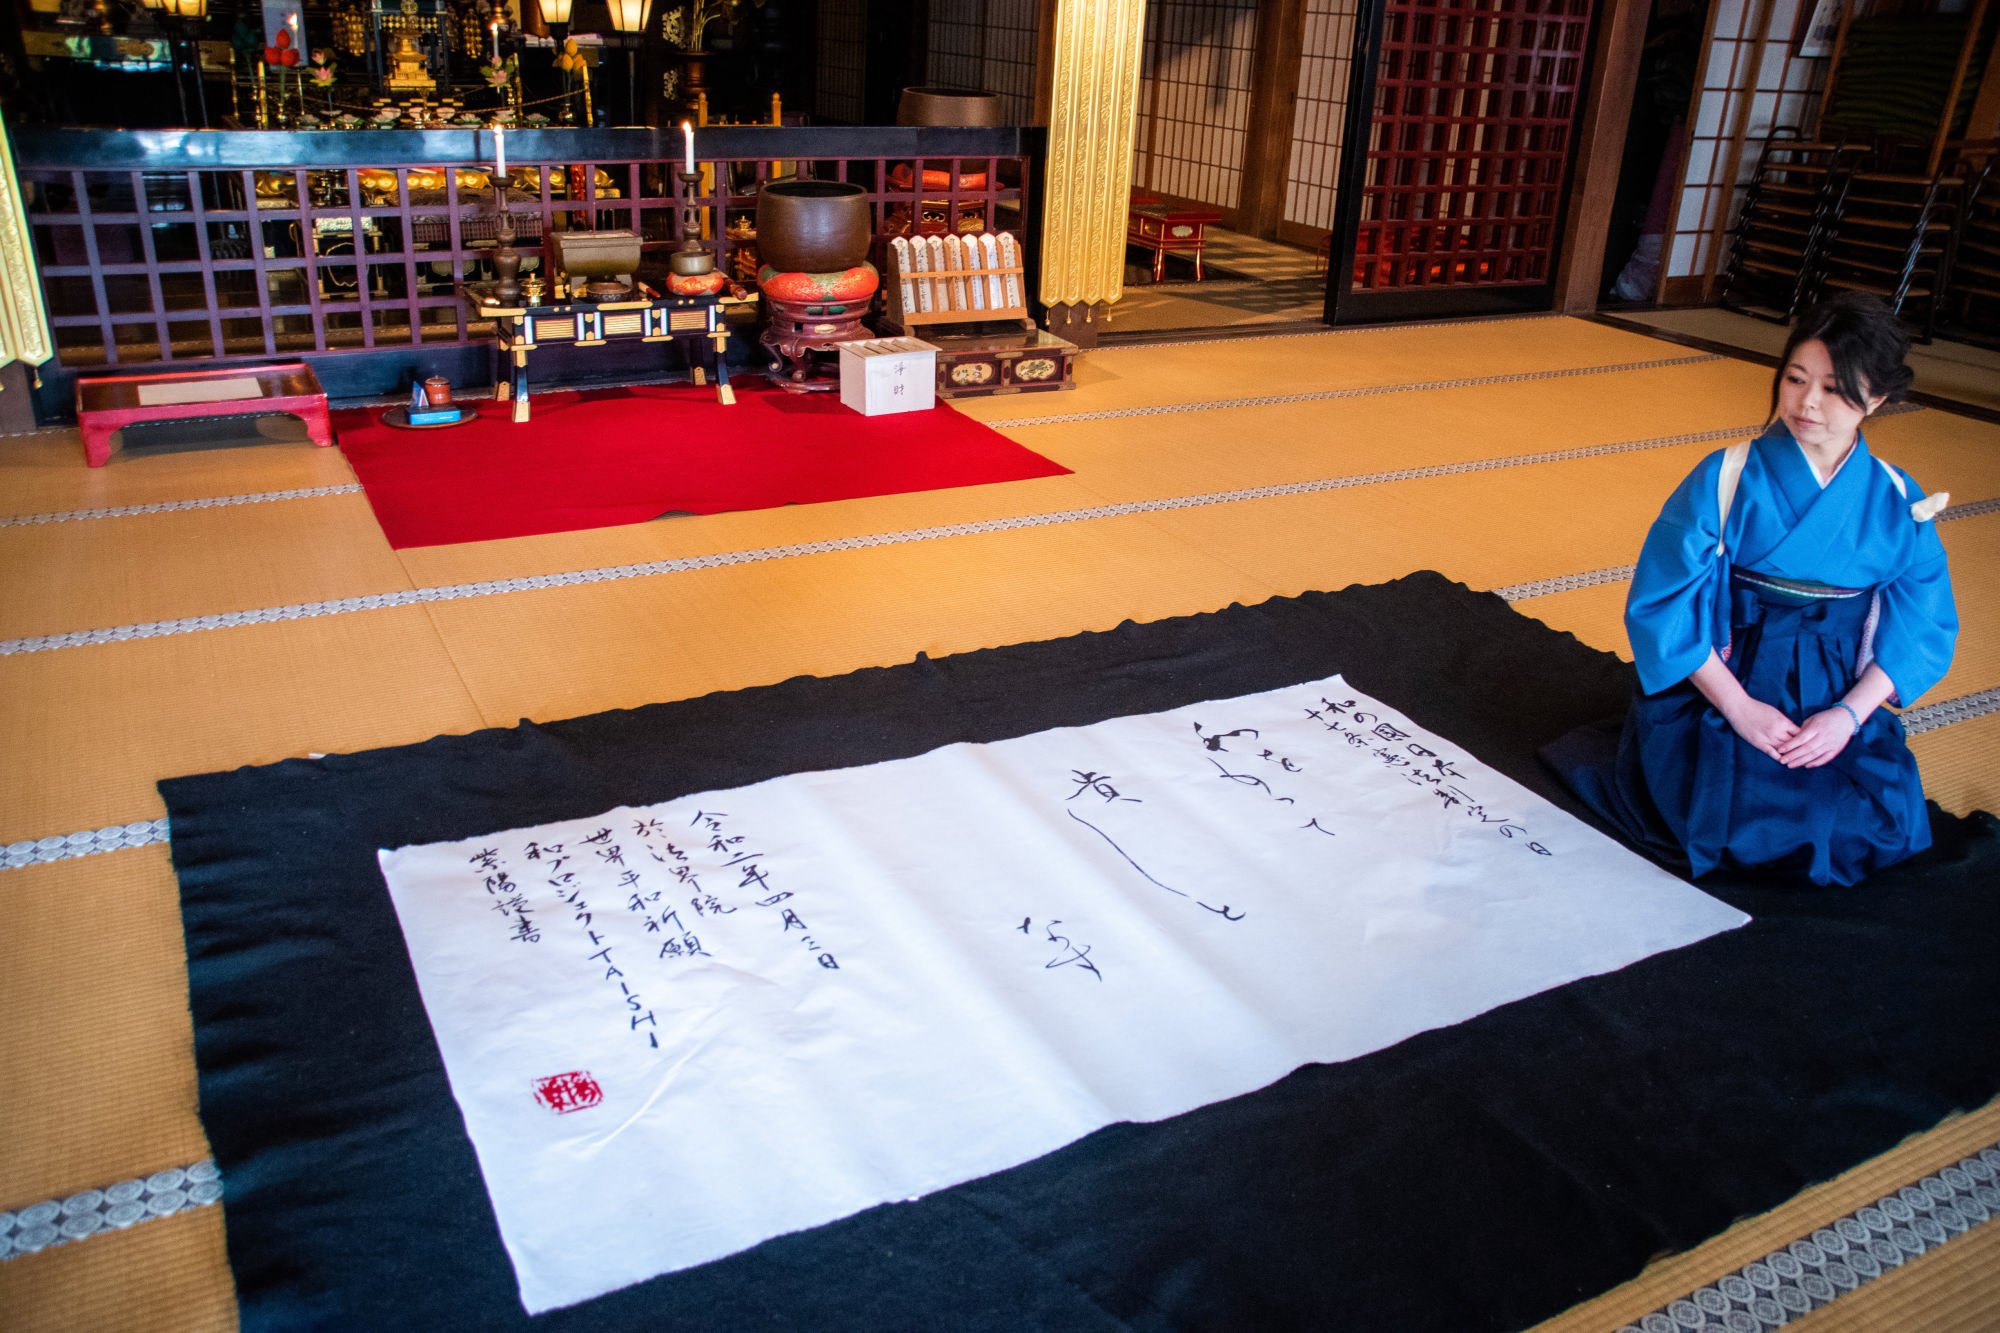 和の國日本
十七条憲法制定の日
和をもって
貴しと
なす
令和二年四月三日
於 法界院
世界平和祈願
和プロジェクトTAISHI
紫陽謹書
浄財